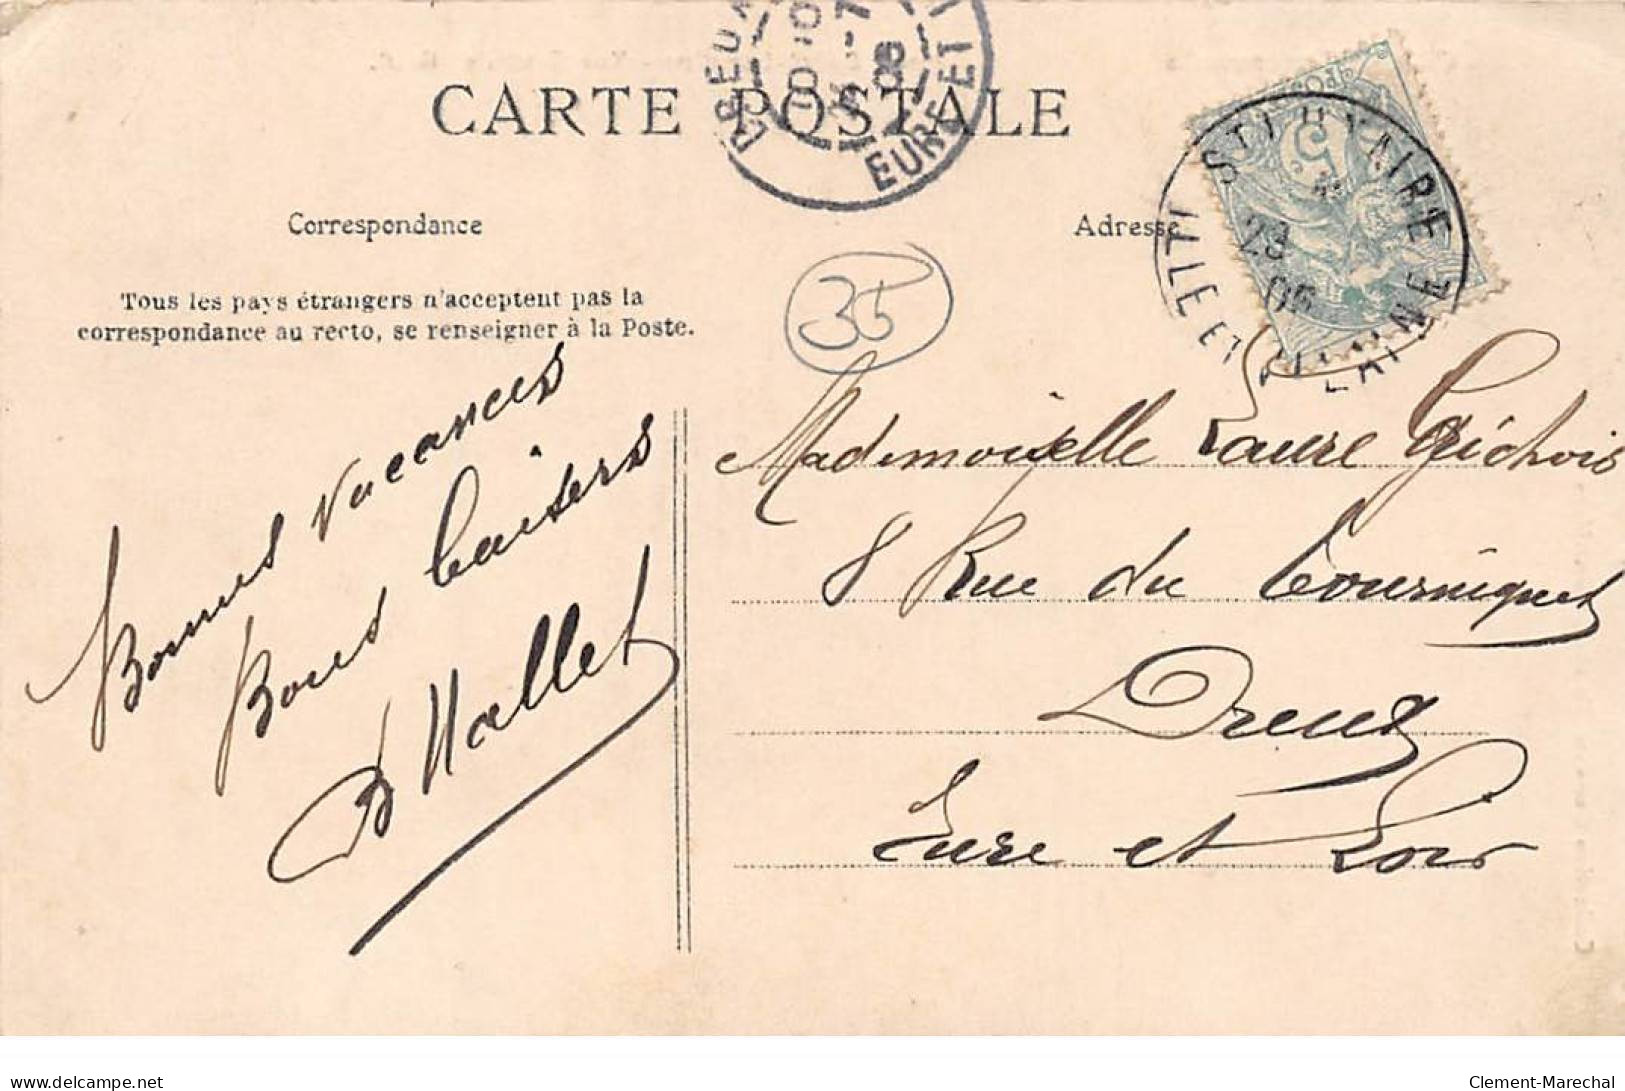 CARTE POSTALE
DREUX
EURE ET L
10 10
-7
06
ST HILAIRE
23
06
ILLE ET VILAINE
5
Correspondance
Adresse
35
Tous les pays étrangers n'acceptent pas la
correspondance au recto, se renseigner à la Poste.
Bonnes vacances
Bons baisers
B Hallet
Mademoiselle Laure
8 Rue du Tourniquet
Dreux
Eure et Loir
delcampe.net
Clement-Marechal